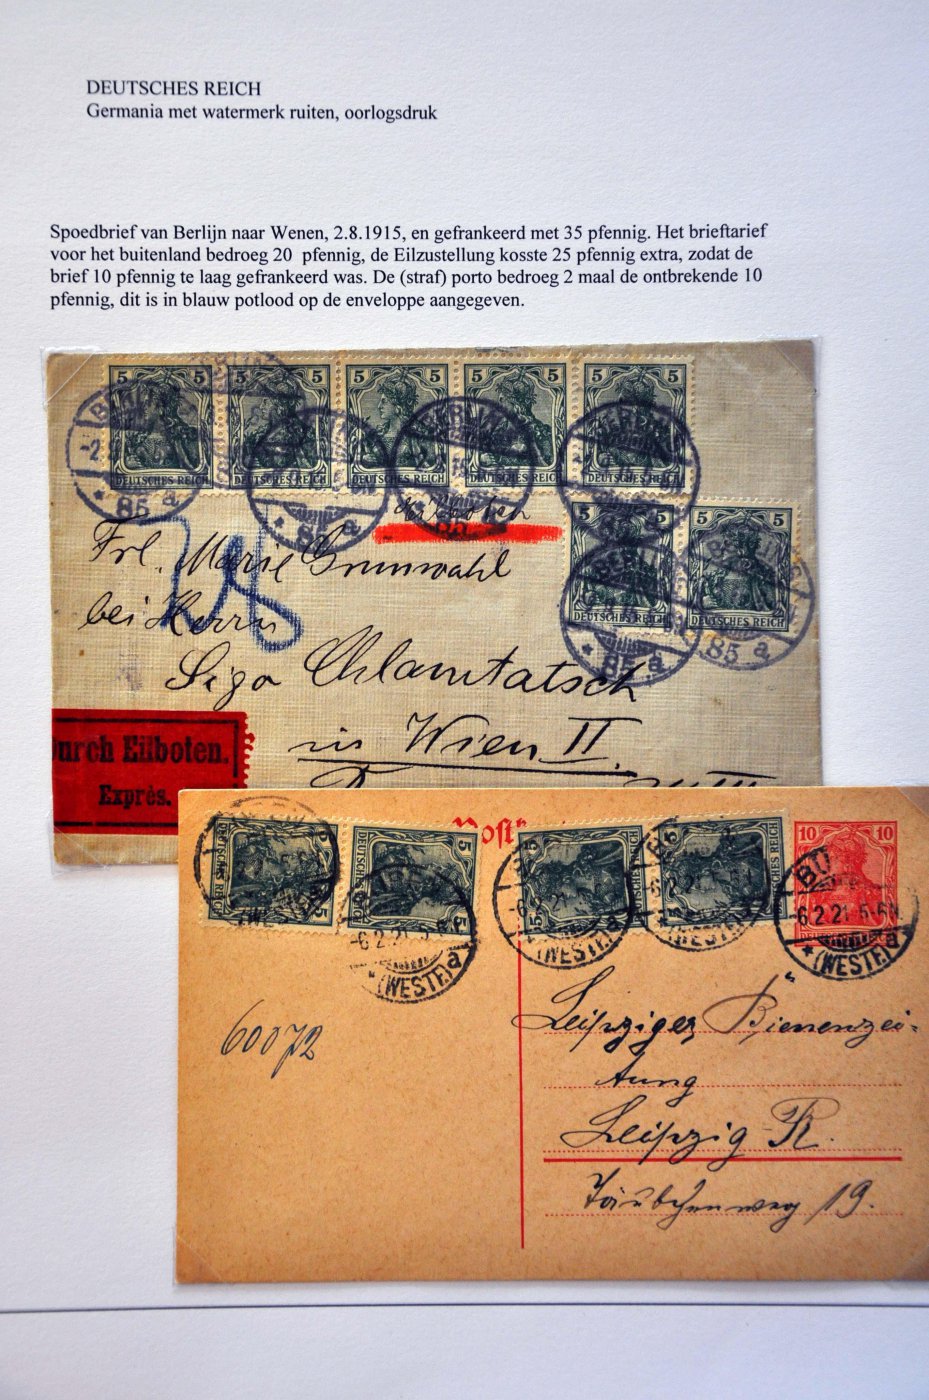 DEUTSCHES REICH
Germania met watermerk ruiten, oorlogsdruk
Spoedbrief van Berlijn naar Wenen, 2.8.1915, en gefrankeerd met 35 pfennig. Het brieftarief
voor het buitenland bedroeg 20 pfennig, de Eilzustellung kosste 25 pfennig extra, zodat de
brief 10 pfennig te laag gefrankeerd was. De (straf) porto bedroeg 2 maal de ontbrekende 10
pfennig, dit is in blauw potlood op de enveloppe aangegeven.
5 5 5 5 5 5 5 5 5 5
DEUTSCHES REICH DEUTSCHES REICH DEUTSCHES REICH DEUTSCHES REICH DEUTSCHES REICH
BERLIN
85 a
Eilboten
5 5 5 5
DEUTSCHES REICH DEUTSCHES REICH
BERLIN
85 a
Frl. Marie Grunwahl
bei Herrn
Sigo
in Wien II
Durch Eilboten.
Exprès.
Post
5 5 5 5
DEUTSCHES REICH
10 10
BÜREN
-6.2.21.5-6N
(WESTF.) a
60072
Leipziger Bienenzei-
tung
Leipzig-R.
Täubchenweg 19.